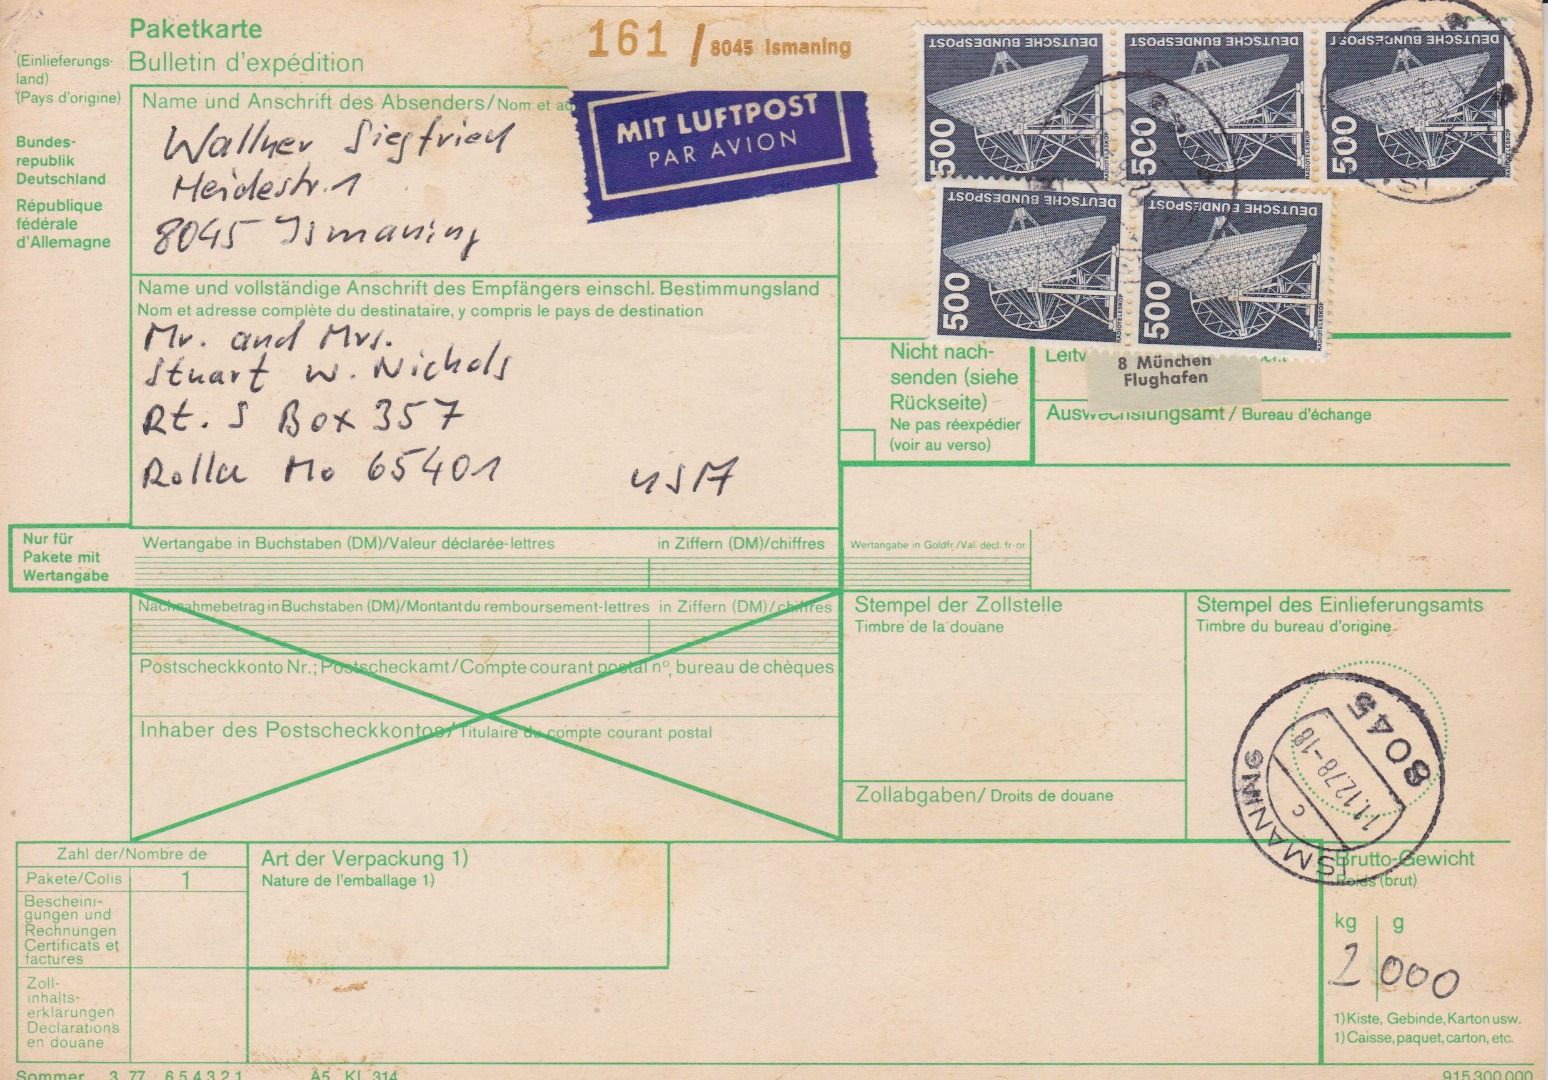 Paketkarte
Bulletin d'expédition
(Einlieferungs-
land)
(Pays d'origine)
Bundes-
republik
Deutschland
République
fédérale
d'Allemagne
161 / 8045 Ismaning
MIT LUFTPOST
PAR AVION
Name und Anschrift des Absenders/Nom et ad
Wallner Siegfried
Heidestr. 1
8045 Ismaning
DEUTSCHE BUNDESPOST
500
DEUTSCHE BUNDESPOST
500
DEUTSCHE BUNDESPOST
500
DEUTSCHE BUNDESPOST
500
RADIOTELESKOP
DEUTSCHE BUNDESPOST
500
RADIOTELESKOP
Name und vollständige Anschrift des Empfängers einschl. Bestimmungsland
Nom et adresse complète du destinataire, y compris le pays de destination
Mr. and Mrs.
Stuart W. Nichols
Rt. 5 Box 357
Rolla Mo 65401 USA
Nicht nach-
senden (siehe
Rückseite)
Ne pas réexpédier
(voir au verso)
Leitv
8 München
Flughafen
Auswechslungsamt / Bureau d'échange
Nur für
Pakete mit
Wertangabe
Wertangabe in Buchstaben (DM)/Valeur déclarée-lettres in Ziffern (DM)/chiffres
Wertangabe in Goldfr./Val. décl. fr-or
Nachnahmebetrag in Buchstaben (DM)/Montant du remboursement-lettres in Ziffern (DM)/chiffres
Postscheckkonto Nr.; Postscheckamt/Compte courant postal nº, bureau de chèques
Inhaber des Postscheckkontos/Titulaire du compte courant postal
Stempel der Zollstelle
Timbre de la douane
Stempel des Einlieferungsamts
Timbre du bureau d'origine
8045
11.12.78-18
c
ISMANING
Zollabgaben/Droits de douane
Zahl der/Nombre de
Pakete/Colis 1
Bescheini-
gungen und
Rechnungen
Certificats et
factures
Zoll-
inhalts-
erklärungen
Déclarations
en douane
Art der Verpackung 1)
Nature de l'emballage 1)
Brutto-Gewicht
Poids (brut)
kg g
2 000
1) Kiste, Gebinde, Karton usw.
1) Caisse, paquet, carton, etc.
Sommer 3 77 6 5 4 3 2 1 A5, Kl. 314
915 300 000